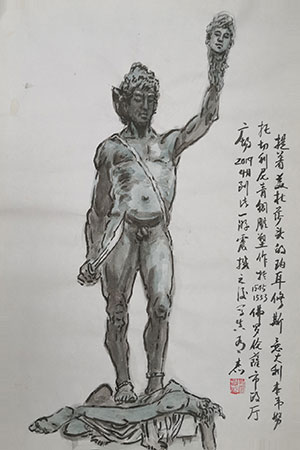 提着美杜莎头的珀耳修斯 意大利 本韦努
托·切利尼青铜雕塑 作于1545-1553 佛罗伦萨市政厅
广场 2017年8月到此一游 震撼之